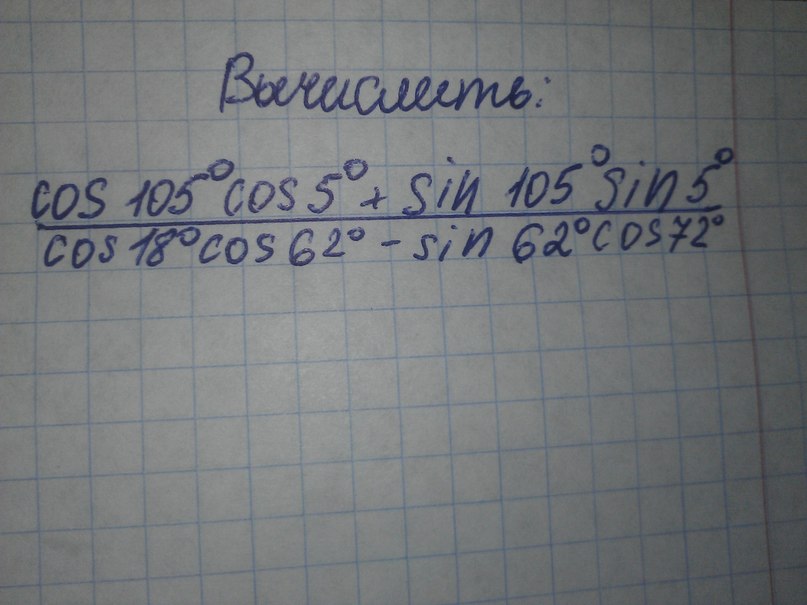 Вычислить:
cos 105° cos 5° + sin 105° sin 5°
cos 18° cos 62° - sin 62° cos 72°